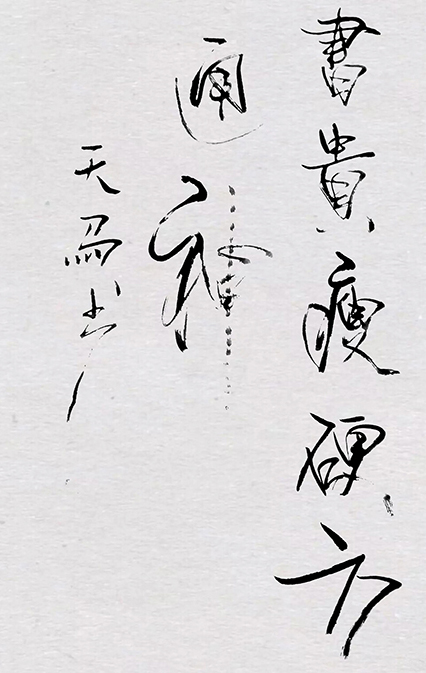 書貴瘦硬方
通神
天馬书